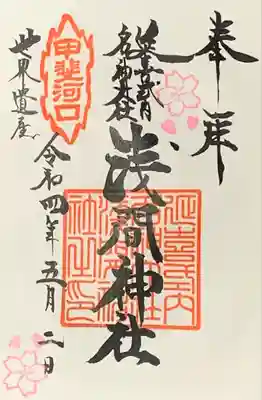 奉拝
延喜式内
名神大社
浅間神社
延喜式内
社之印
甲斐河口
世界遺産
令和四年五月二日